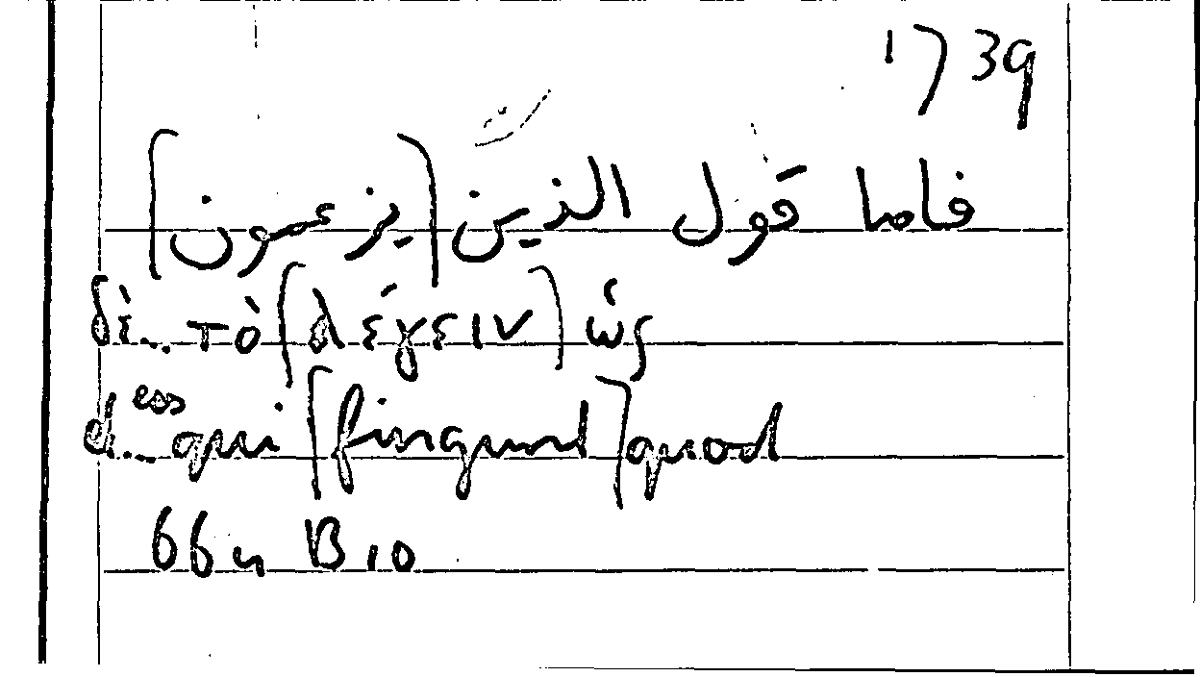 1739
فاما قول الذين [يزعمون]
δὲ... τὸ [λέγειν] ὡς
d... ess qui [fingunt] quod
664 B 10